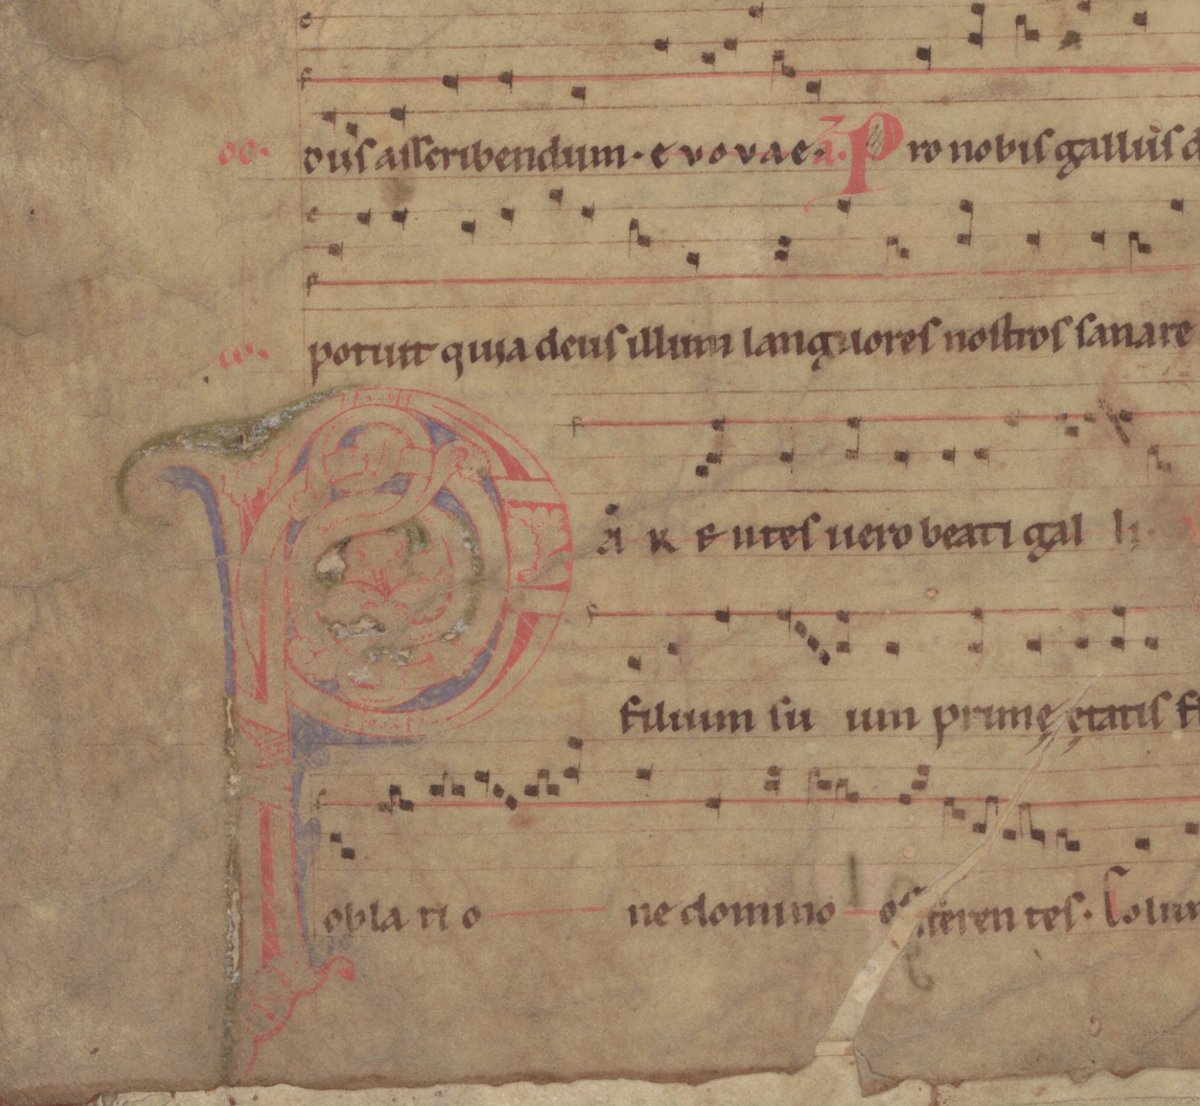 dus asscribendum · e v o v a e · a. Pro nobis gallus
potuit quia deus illum languores nostros sanare
PARENtes uero beati gal li ·
filium su um prime etatis
oblati o ne domino offerentes · Solum